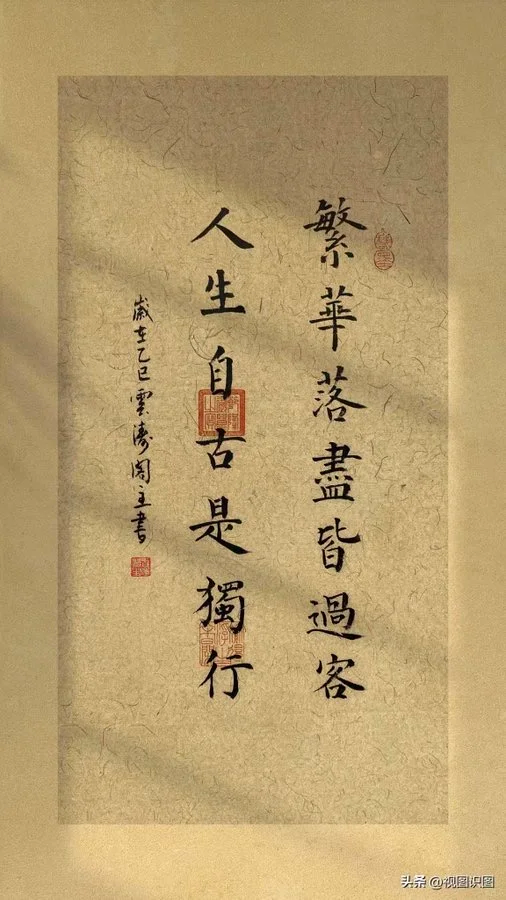 繁華落盡皆過客
人生自古是獨行
歲在乙巳雲濤閣主書
头条 @视图识图